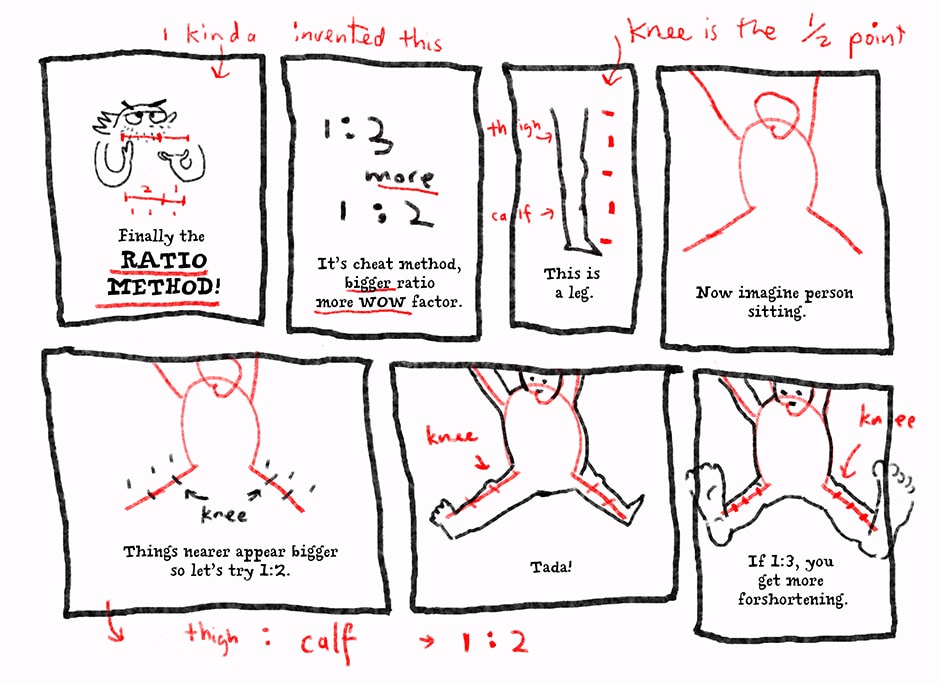 I kinda invented this
knee is the 1/2 point
2 1
1 1 1
Finally the
RATIO
METHOD!
1:3
more
1:2
It's cheat method,
bigger ratio
more WOW factor.
thigh
calf
This is
a leg.
Now imagine person
sitting.
knee
Things nearer appear bigger
so let's try 1:2.
knee
Tada!
knee
If 1:3, you
get more
forshortening.
thigh : calf → 1:2